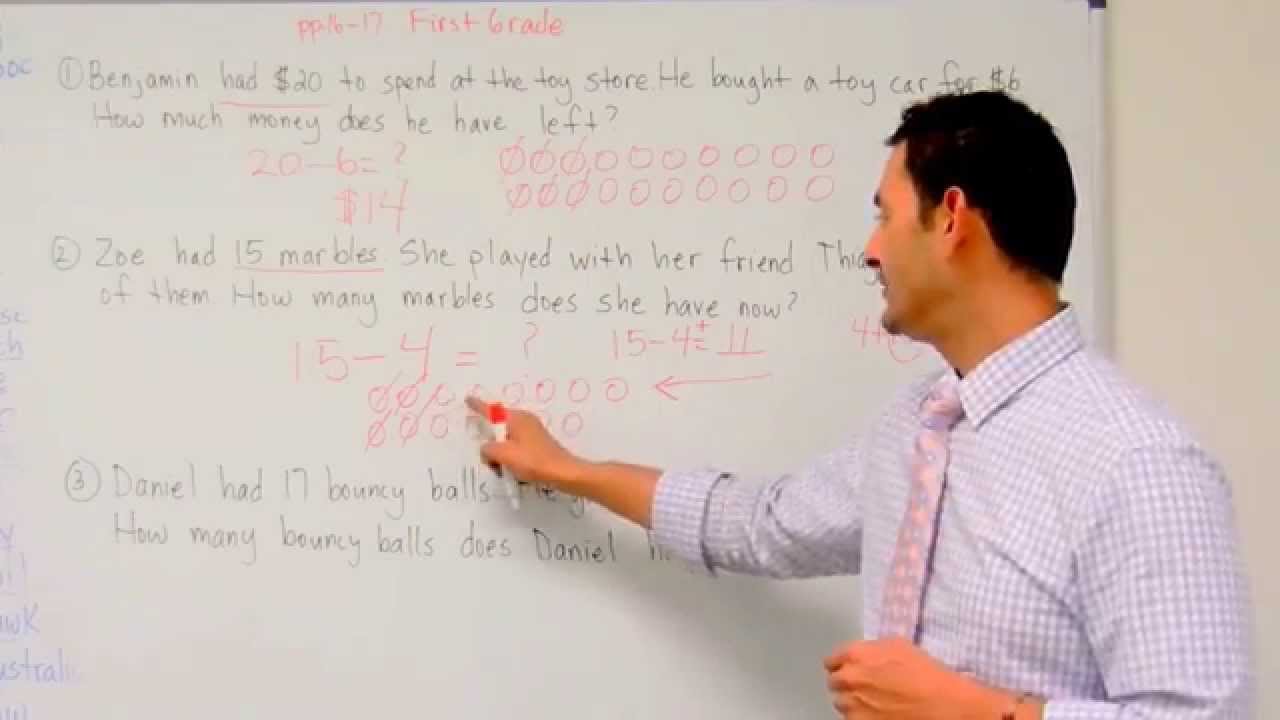 pp.16-17 First Grade
① Benjamin had $20 to spend at the toy store. He bought a toy car for $6
How much money does he have left?
20-6=?
$14
② Zoe had 15 marbles. She played with her friend
of them. How many marbles does she have now?
15-4= ? 15-4= 11 4+
③ Daniel had 17 bouncy balls.
How many bouncy balls does Daniel